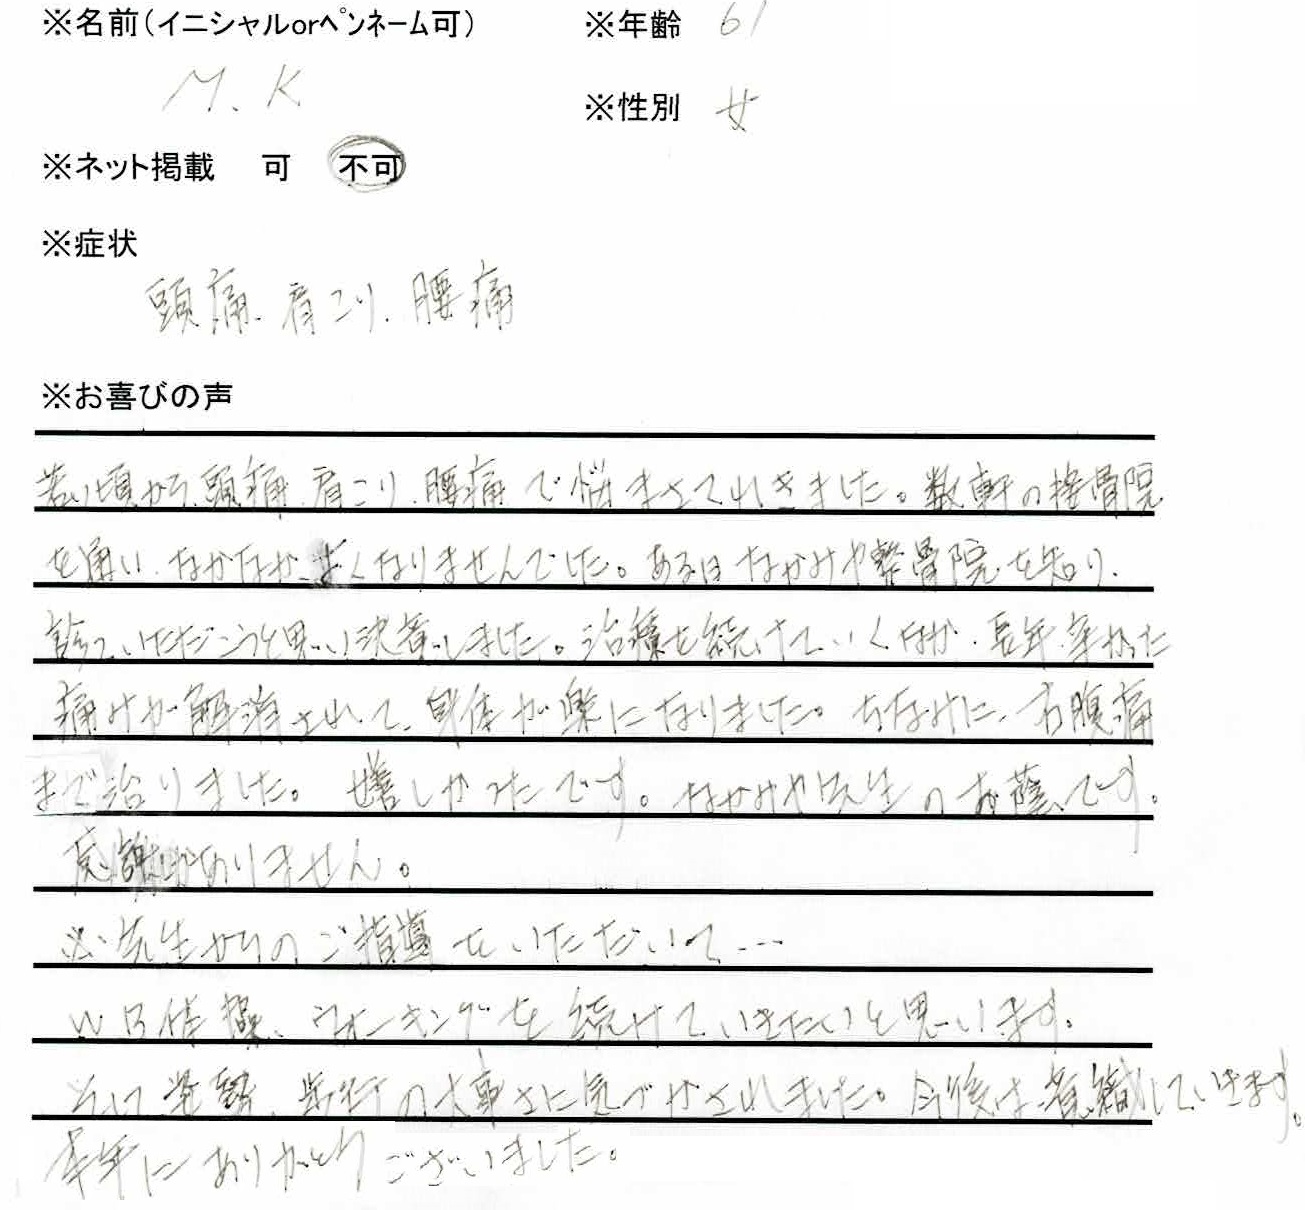 ※名前（イニシャルorペンネーム可）　※年齢 61
M.K
※性別 女
※ネット掲載　可　不可
※症状
頭痛、肩こり、腰痛
※お喜びの声
若い頃から、頭痛、肩こり、腰痛で悩まされてきました。数軒の接骨院
を通い、なかなかよくなりませんでした。ある日なかみや整骨院を知り、
診ていただこうと思い決意しました。治療を続けていくなか、長年、辛かった
痛みが解消されて、身体が楽になりました。ちなみに、右腹痛
まで治りました。嬉しかったです。なかみや先生のお蔭です。
感謝しかありません。
※先生からのご指導をいただいて…
WB体操、ウォーキングを続けていきたいと思います。
そして姿勢、歩行の大事さに気づかされました。今後は意識していきます。
本当にありがとうございました。